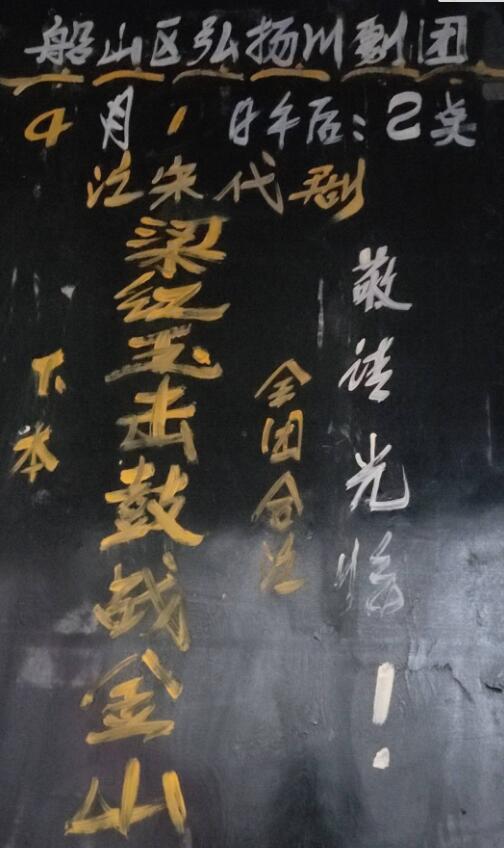 船山区弘扬川剧团
4月1日午后:2奌
演宋代剧
梁红玉击鼓战金山
下本
全团合演
敬请光临!